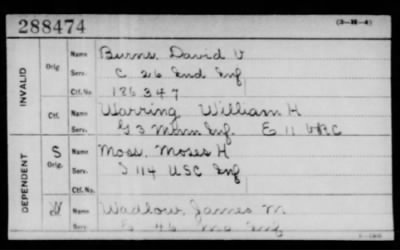 288474
(3-H-4)
INVALID
Orig.
Name Burns, David V
Serv. C 26 Ind Inf
Ctf. No. 186347
Ctf.
Name Warring William H
Serv. G 3 Minn Inf. E 11 VRC
DEPENDENT
S
Orig.
Name Moss, Moses H
Serv. I 114 USC Inf
Ctf. No.
Name Wadlow, James M.
Serv. 46 Mo Inf